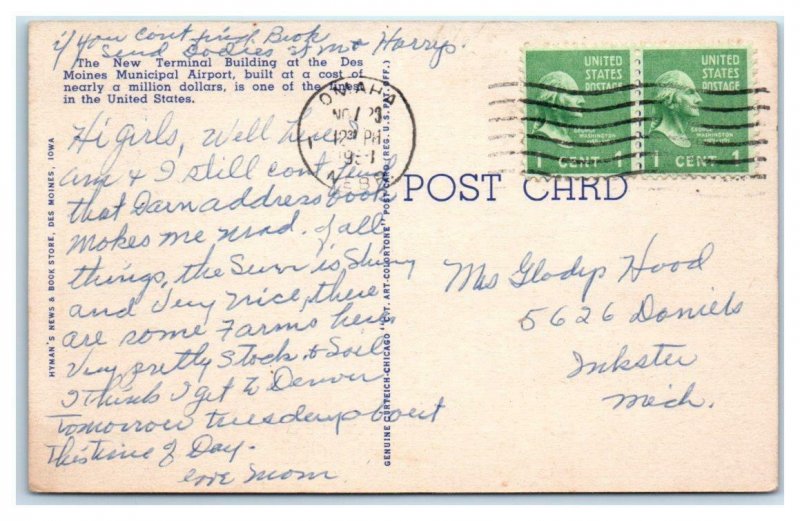 if you cont find Book
Send Dodies at Mt Harrys.
The New Terminal Building at the Des
Moines Municipal Airport, built at a cost of
nearly a million dollars, is one of the finest
in the United States.
Hi girls, Well here I
am & I still cont find
that Darn address book
makes me mad. of all
things, the Sun is Shiny
and Very nice, there
are some Farms here
Very pretty Stock & Soil
I think I get to Denver
Tomorrow tuesday about
this time of Day.
love Mom
HYMAN'S NEWS & BOOK STORE, DES MOINES, IOWA
GENUINE CURTEICH-CHICAGO "C.T. ART-COLORTONE" POST CARD (REG. U.S. PAT. OFF.)
OMAHA
12 PM
POST CARD
UNITED
STATES
POSTAGE
GEORGE
WASHINGTON
1 CENT 1
UNITED
STATES
POSTAGE
GEORGE
WASHINGTON
1 CENT 1
Mrs Gladys Hood
5626 Daniels
Inkster
Mich.